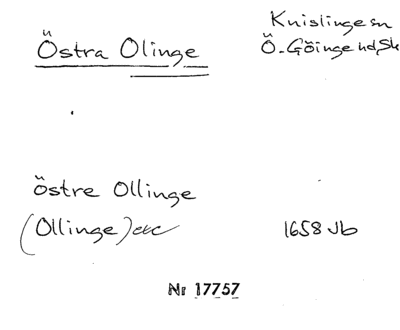 Östra Olinge
Knislinge sn
Ö. Göinge hd, Sk
östre Ollinge
(Ollinge) etc
1658 Jb
Nr 17757